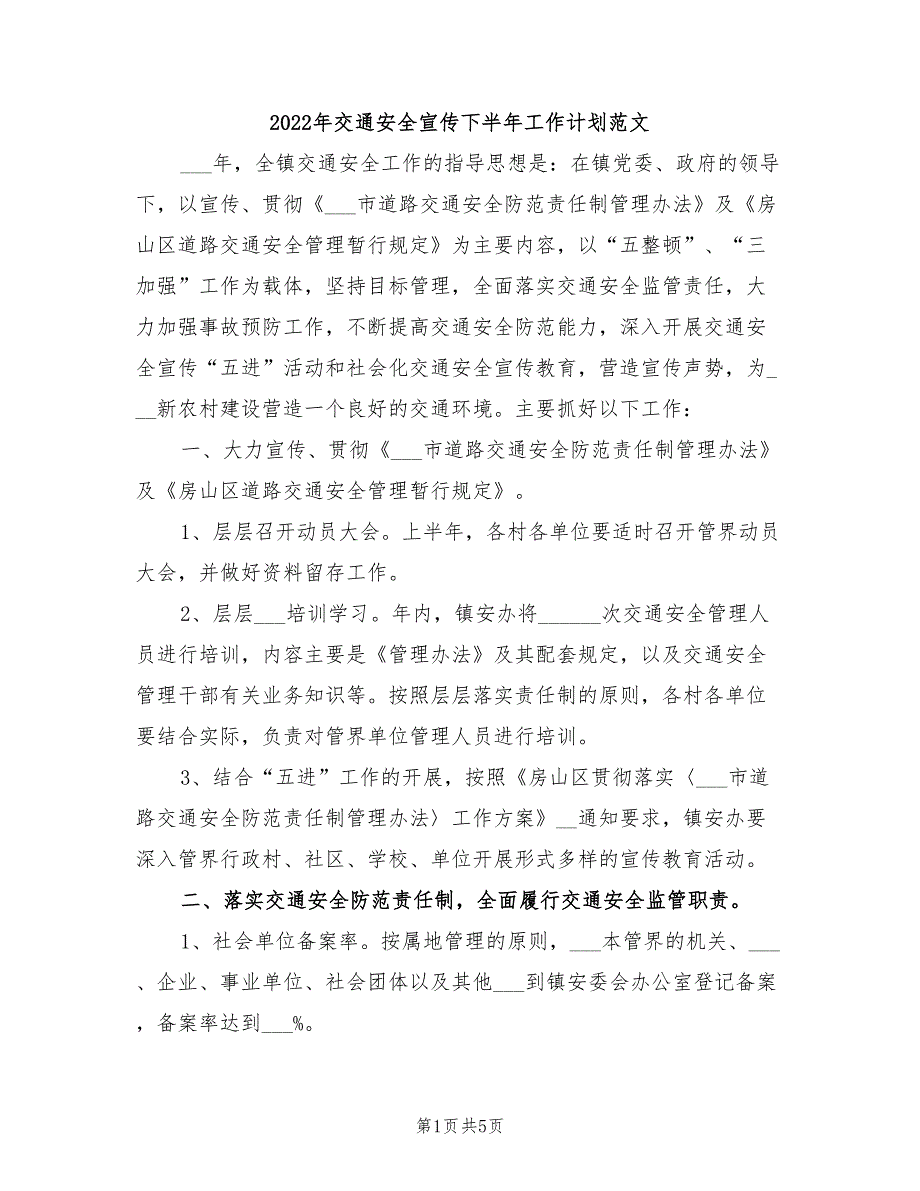 2022年交通安全宣传下半年工作计划范文
___年，全镇交通安全工作的指导思想是：在镇党委、政府的领导
下，以宣传、贯彻《___市道路交通安全防范责任制管理办法》及《房
山区道路交通安全管理暂行规定》为主要内容，以“五整顿”、“三
加强”工作为载体，坚持目标管理，全面落实交通安全监管责任，大
力加强事故预防工作，不断提高交通安全防范能力，深入开展交通安
全宣传“五进”活动和社会化交通安全宣传教育，营造宣传声势，为_
__新农村建设营造一个良好的交通环境。主要抓好以下工作：
一、大力宣传、贯彻《___市道路交通安全防范责任制管理办法》
及《房山区道路交通安全管理暂行规定》。
1、层层召开动员大会。上半年，各村各单位要适时召开管界动员
大会，并做好资料留存工作。
2、层层___培训学习。年内，镇安办将______次交通安全管理人
员进行培训，内容主要是《管理办法》及其配套规定，以及交通安全
管理干部有关业务知识等。按照层层落实责任制的原则，各村各单位
要结合实际，负责对管界单位管理人员进行培训。
3、结合“五进”工作的开展，按照《房山区贯彻落实〈___市道
路交通安全防范责任制管理办法〉工作方案》__通知要求，镇安办要
深入管界行政村、社区、学校、单位开展形式多样的宣传教育活动。
二、落实交通安全防范责任制，全面履行交通安全监管职责。
1、社会单位备案率。按属地管理的原则，___本管界的机关、___
、企业、事业单位、社会团体以及其他___到镇安委会办公室登记备案
，备案率达到___%。
第1页共5页